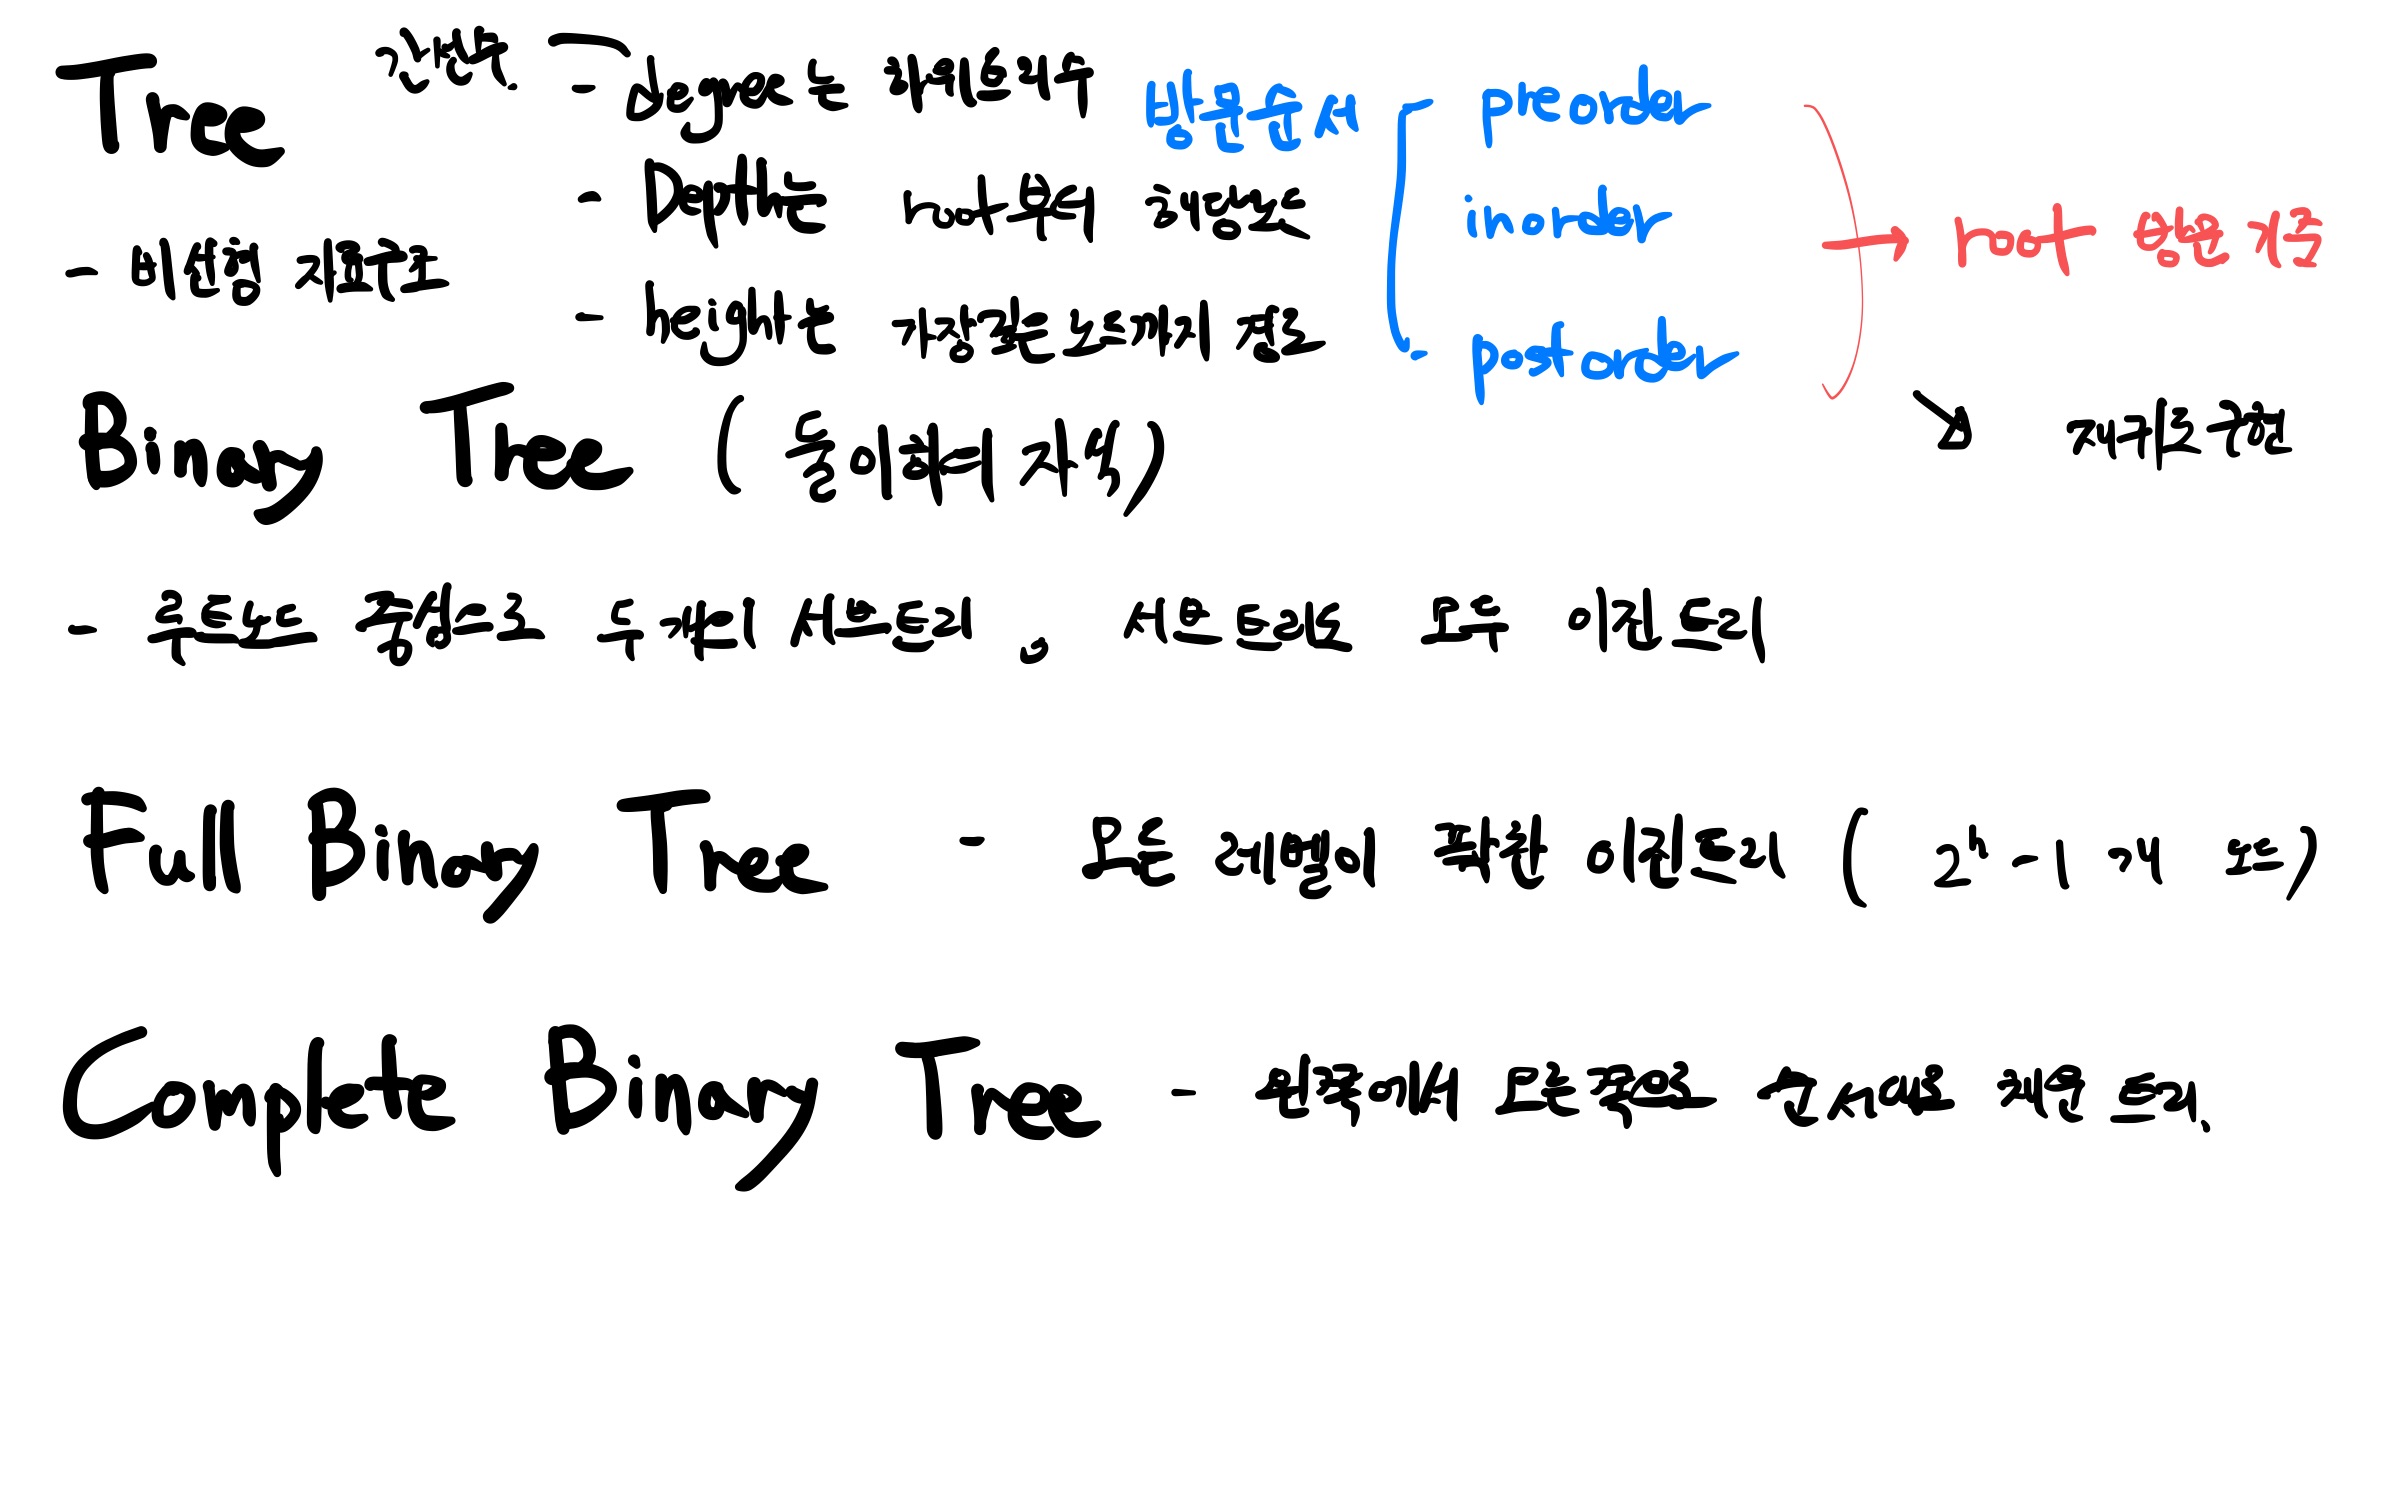 Tree
간선수
- degree는 하위트리 수
- Depth는 root 부터 레벨 또는
- height는 가장 깊은 노드까지 깊이
- 비선형 자료구조
방문순서
preorder
inorder
postorder
root 방문 기준
재귀로 구현
Binary Tree ( 둘 이하의 자식,)
- 루트노드 중심으로 두 개의 서브트리, 서브트리도 모두 이진트리
Full Binary Tree - 모든 레벨이 꽉찬 이진트리 ( 2ʰ - 1 개 노드)
Complete Binary Tree - 왼쪽에서 오른쪽으로 순서대로 채운 트리.